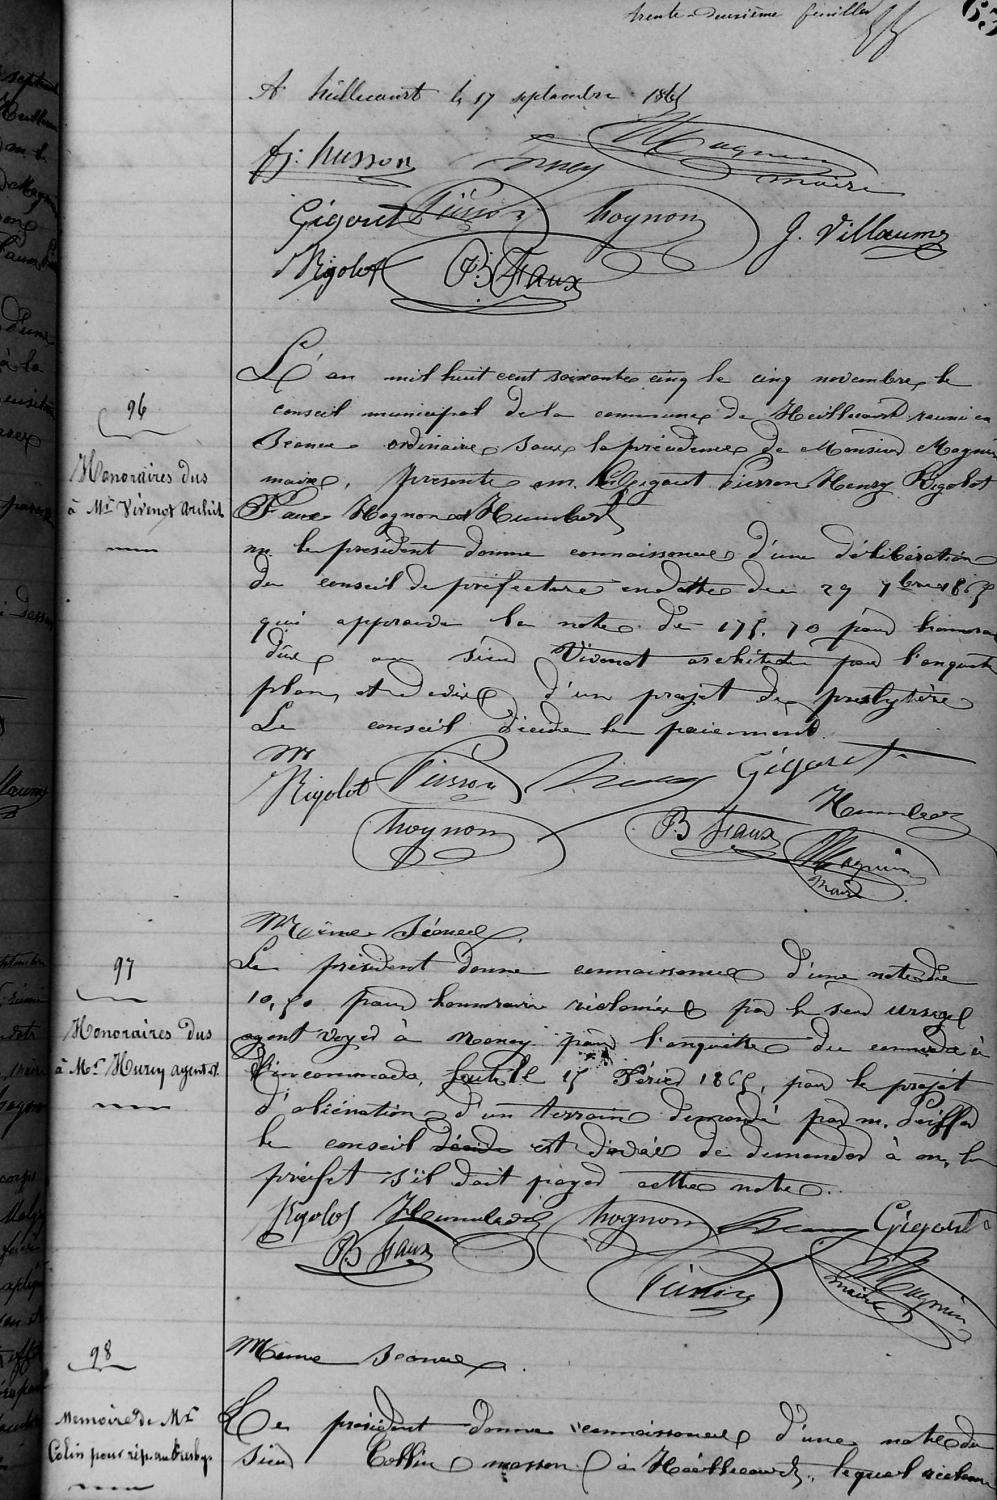 trente-deuxième feuillet
63
A heillecourt le 17 septembre 1865
fs: husson henry Magnin
maire
Gigout Pierson hognon J. Villaume
Rigolot B Faux
96
Honoraires dus
à Mr Vivenot archit
L'an mil huit cent soixante cinq le cinq novembre le
conseil municipal de la commune de Heillecourt reuni en
séance ordinaire sous la présidence de Monsieur Magnin
maire, présents mm. Gigout Pierson Henry Rigolot
Faux Hognon et Humbert
m le president donne connaissance d'une délibération
du conseil de préfecture en datte du 29 7bre 1865
qui approuve la note de 175.70 pour honorai
dûe au sieur Vivenot architecte pour l'enquete
plan, et devis d'un projet de presbytère
Le conseil décide le paiement
Mr
Rigolot Pierson henry Gigout
Humbert
hognon B Faux Magnin
maire
97
Honoraires dus
à Mr Hurcy agent v.
Même Séance
Le président donne connaissance d'une note de
10,50 pour honoraire réclamée par le sieur
agent voyer à Nancy pour l'enquête de commodo à
d'incommodo, faite le 15 Février 1865, pour le projet
d'aliénation d'un terrain demandé par m.
le conseil décide est d'avis de demander à m, le
préfet s'il doit payer cette note.
Rigolot Humbert hognon henry Gigout
B Faux Pierson Magnin
maire
98
Memoire de Mr
Colin pour rép. au Presby
Meme Seance
Le président donne connaissance d'une note du
sieur Collin masson à Heillecourt, lequel réclame